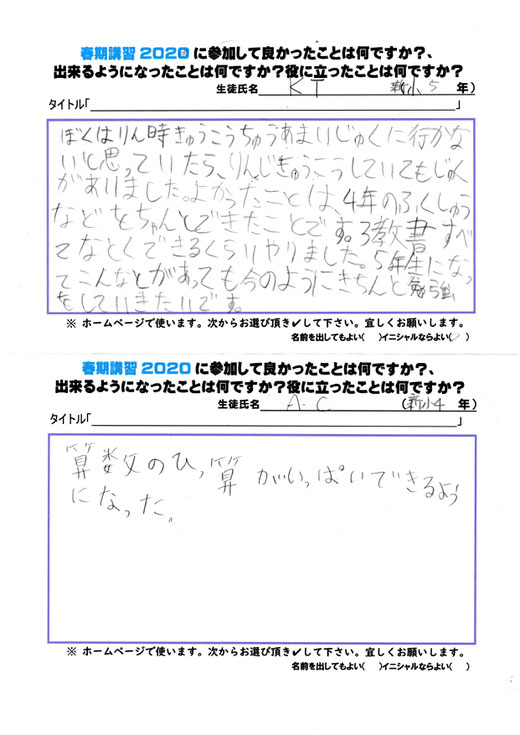 春期講習2020に参加して良かったことは何ですか?、
出来るようになったことは何ですか?役に立ったことは何ですか?
生徒氏名 KT 新小5 年)
タイトル「 」
ぼくはりん時きゅうこうちゅうあまりじゅくに行かな
いと思っていたら、りんじきゅうこうしていてもじゅく
がありました。よかったことは、4年のふくしゅう
などをちゃんとできたことです。3教書すべ
てなとくできるくらいやりました。5年生になっ
てこんなとがあっても今のようにきちんと勉強
をしていきたいです。
※ ホームページで使います。次からお選び頂き✔して下さい。宜しくお願いします。
名前を出してもよい( )イニシャルならよい( )
春期講習2020に参加して良かったことは何ですか?、
出来るようになったことは何ですか?役に立ったことは何ですか?
生徒氏名 A.C (新小4 年)
タイトル「 」
算数のひっ算がいっぱいできるよう
になった。
※ ホームページで使います。次からお選び頂き✔して下さい。宜しくお願いします。
名前を出してもよい( )イニシャルならよい( )